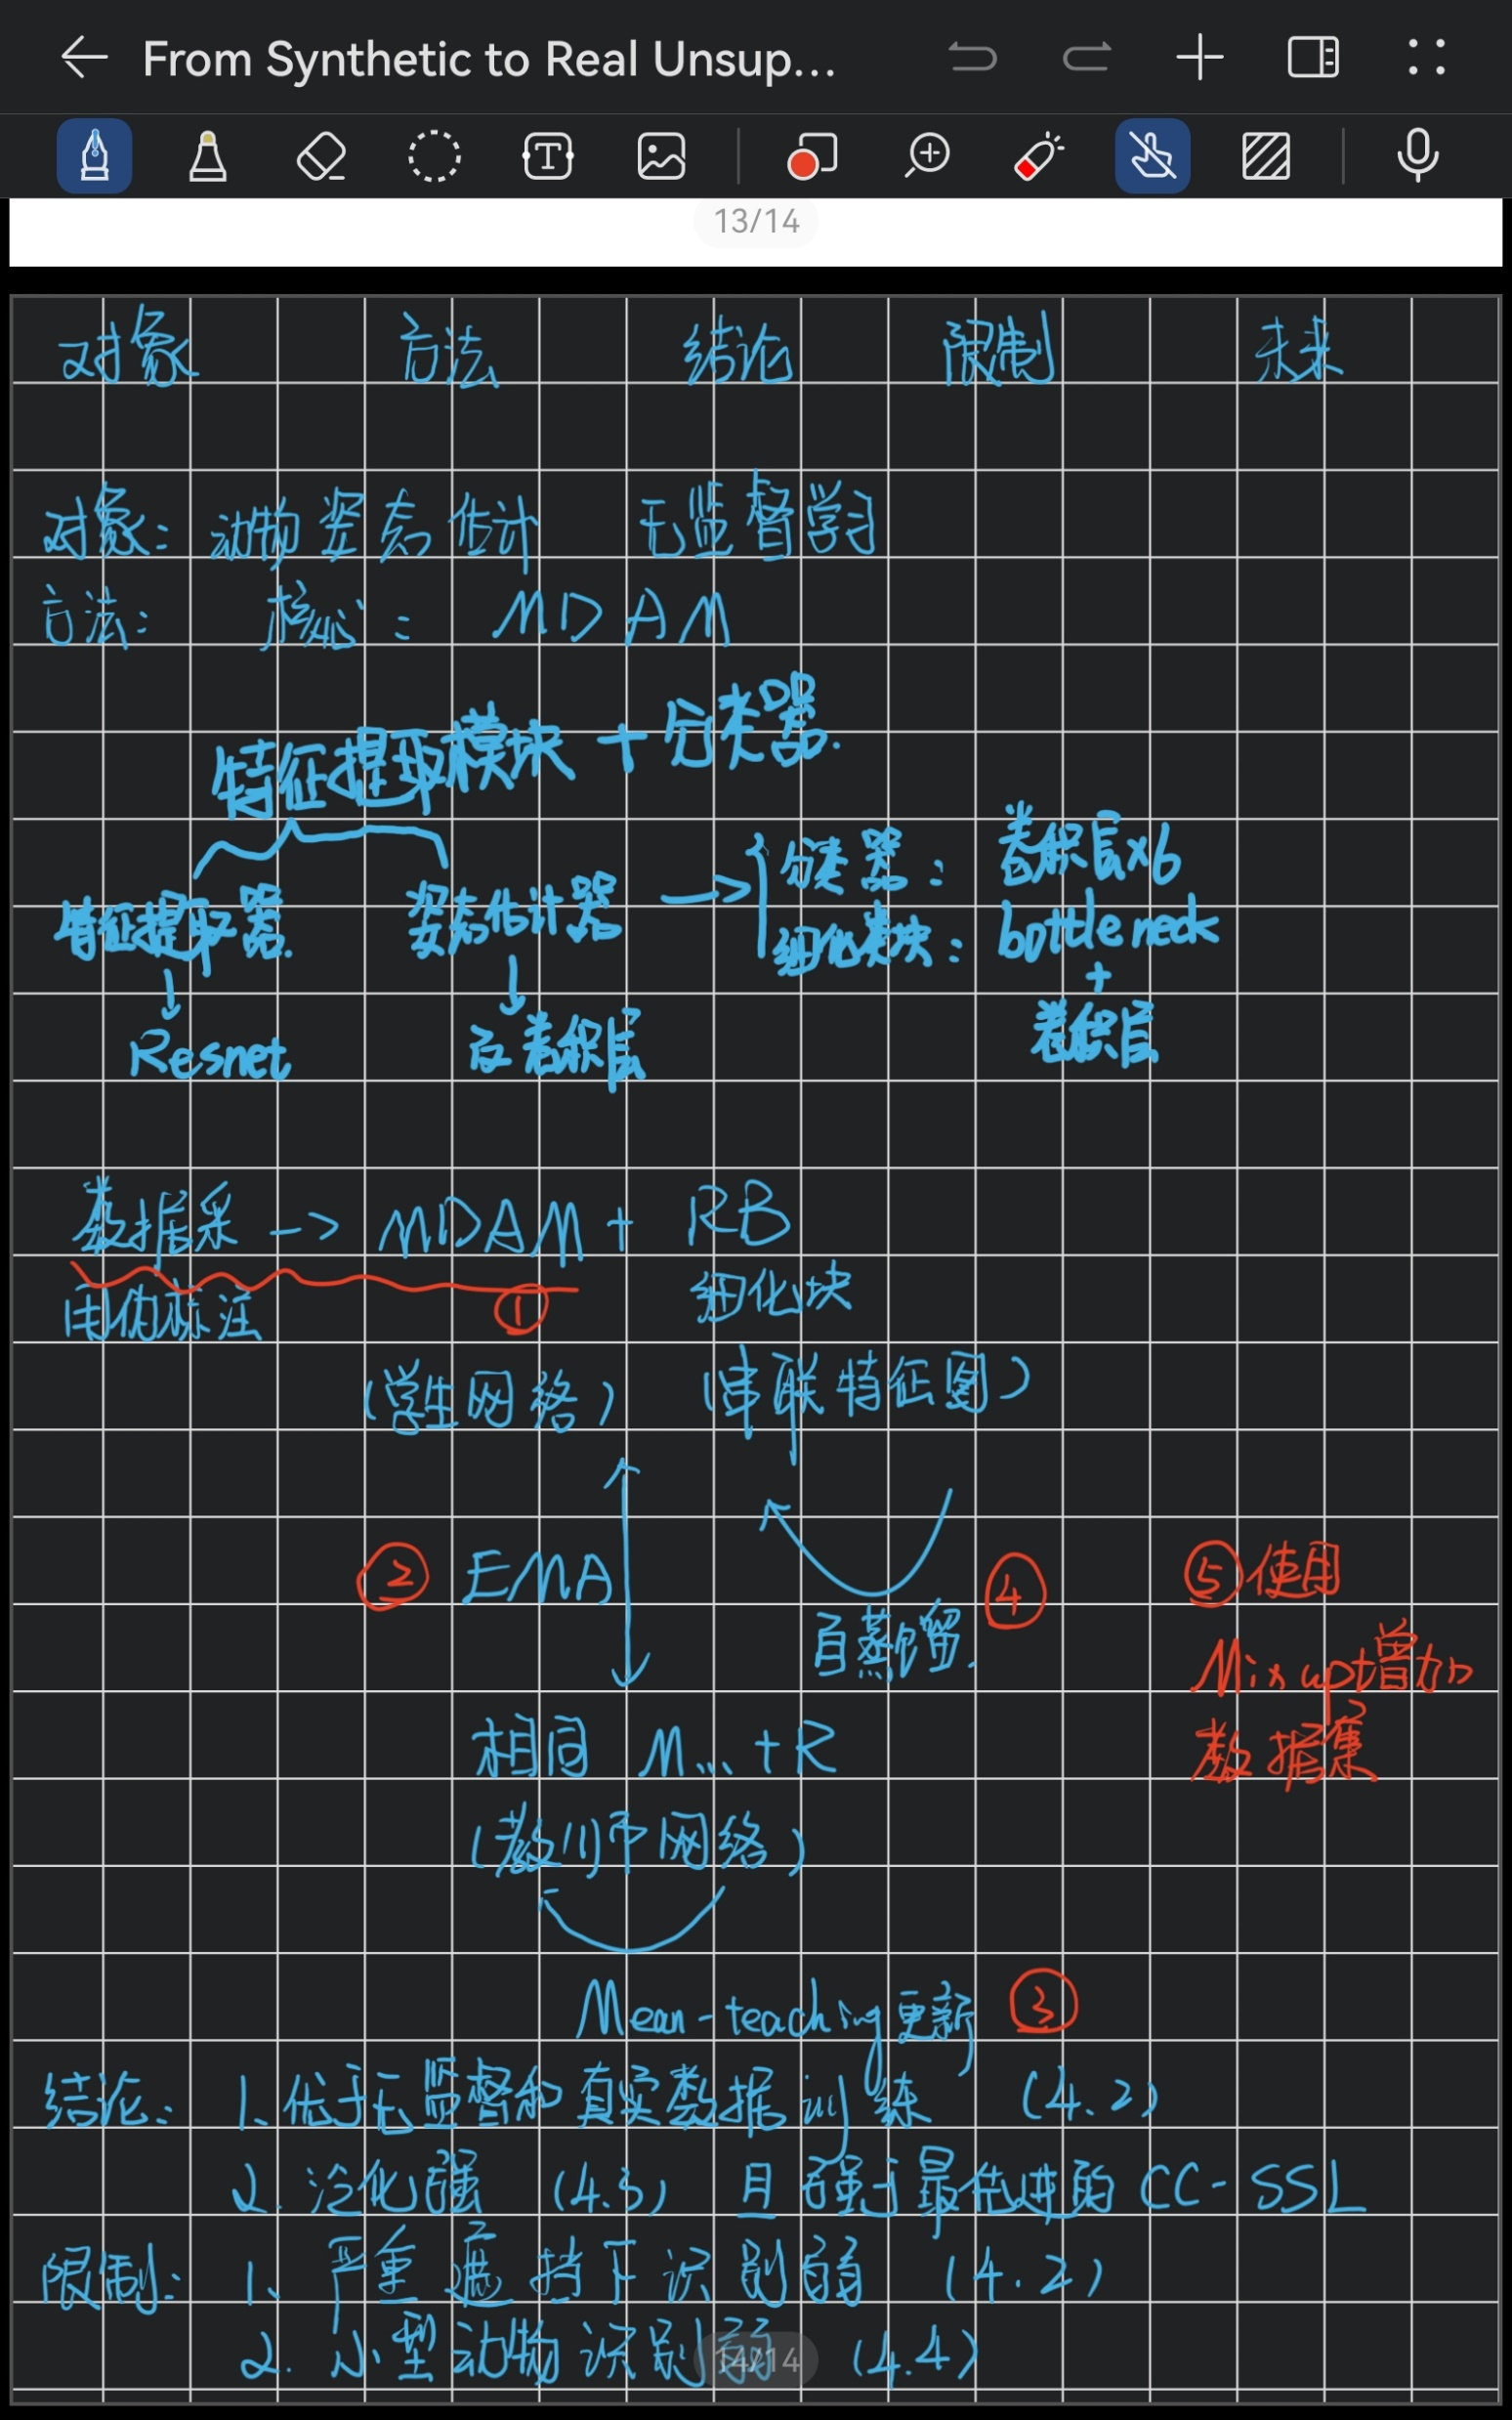 From Synthetic to Real Unsup...
13/14
对象 方法 结论 限制 未来
对象: 动物姿态估计 无监督学习
方法: 核心: MDAM
特征提取模块 + 分类器.
特征提取器. 姿态估计器 → 分类器: 卷积层×6
细化块: bottle neck
+
卷积层
Resnet 反卷积层
数据采 -> MDAM + RB
用伪标注 ① 细化块
(学生网络) (串联特征图)
② EMA ④ ⑤使用
自蒸馏. Mix up增加
数据集
相同 M...+R
(教师网络)
Mean-teaching更新 ③
结论: 1. 优于无监督和真实数据训练 (4.2)
2. 泛化强 (4.3) 且强于最先进的 CC-SSL
限制: 1. 严重遮挡下识别弱 (4.2)
2. 小型动物识别弱 (4.4)
14/14